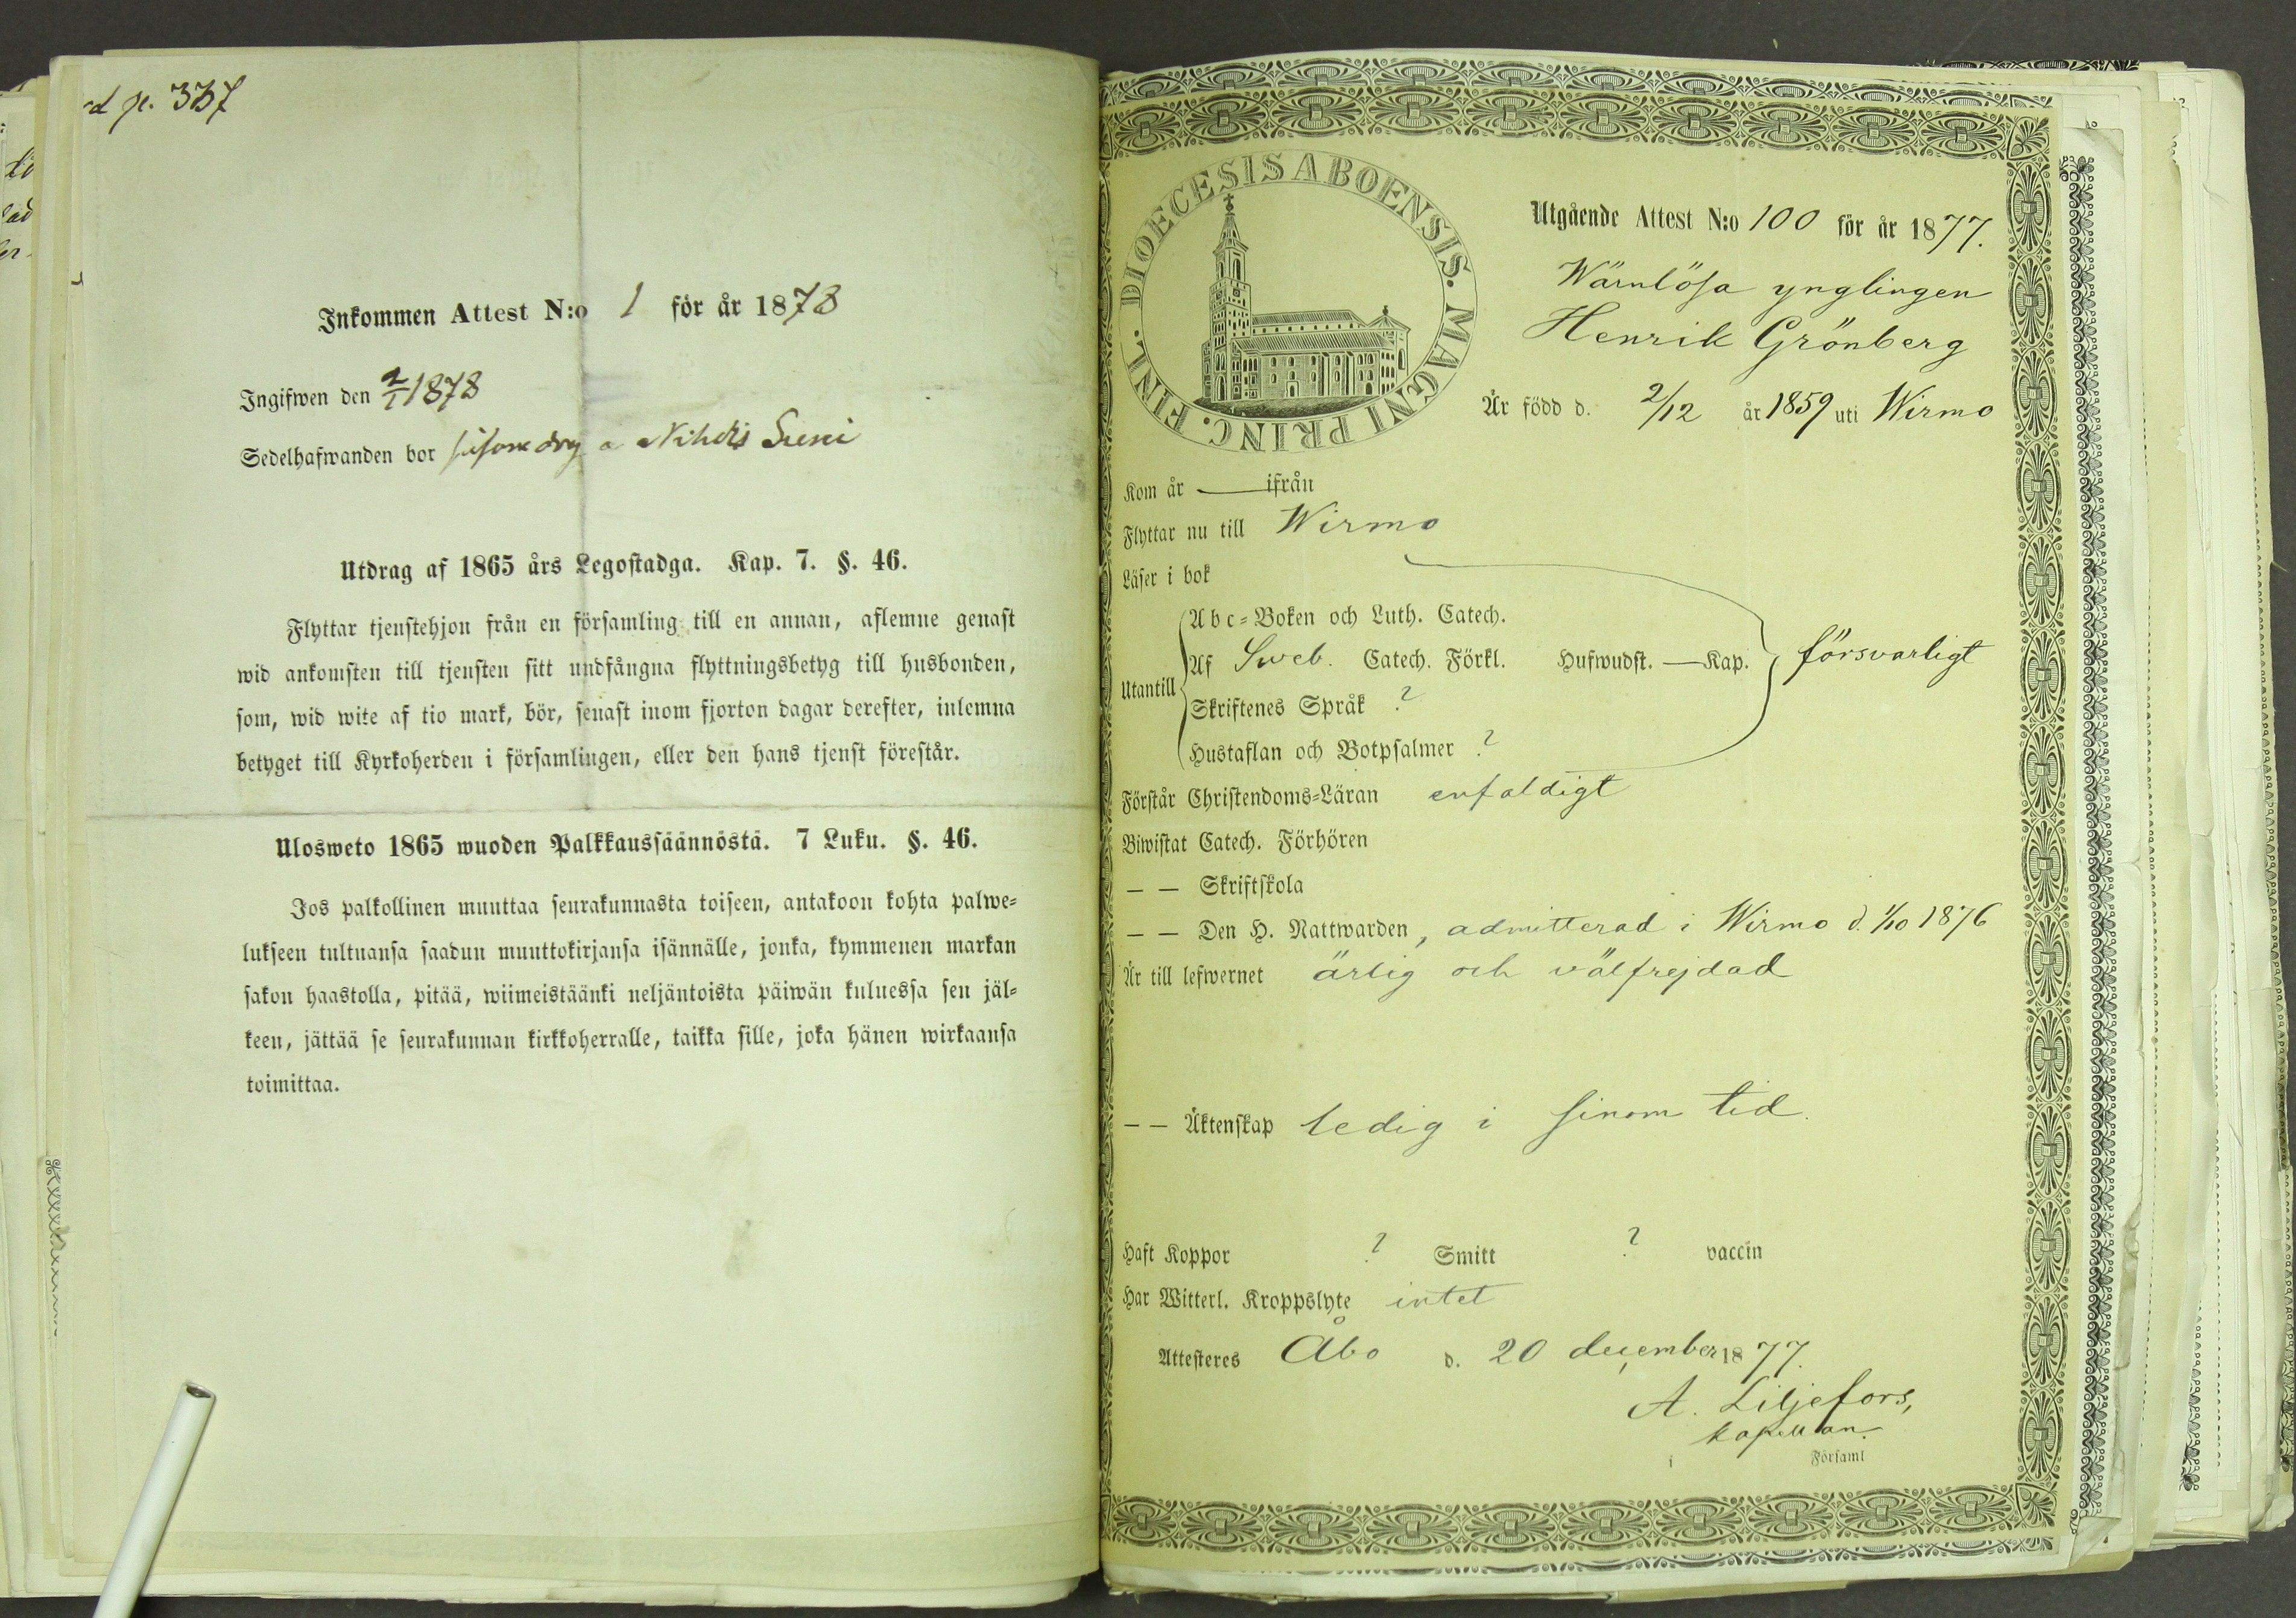 p. 337
Inkommen Attest N:o 1 för år 1878
Ingifwen den 2/1 1878
Sedelhafwanden bor såsom drg a Nihdis Suni
Utdrag af 1865 års Legostadga. Kap. 7. §. 46.
Flyttar tjenstehjon från en församling till en annan, aflemne genast
wid ankomsten till tjensten sitt undfångna flyttningsbetyg till husbonden,
som, wid wite af tio mark, bör, senast inom fjorton dagar derefter, inlemna
betyget till Kyrkoherden i församlingen, eller den hans tjenst förestår.
Ulosweto 1865 wuoden Palkkaussäännöstä. 7 Luku. §. 46.
Jos palkollinen muuttaa seurakunnasta toiseen, antakoon kohta palwe-
lukseen tultuansa saadun muuttokirjansa isännälle, jonka, kymmenen markan
sakon haastolla, pitää, wiimeistäänki neljäntoista päiwän kuluessa sen jäl-
keen, jättää se seurakunnan kirkkoherralle, taikka sille, joka hänen wirkaansa
toimittaa.
DIOECESIS ABOENSIS. MAGNI PRINC. FINL.
Utgående Attest N:o 100 för år 1877.
Wärnlösa ynglingen
Henrik Grönberg
Är född d. 2/12 år 1859 uti Wirmo
Kom år — ifrån
Flyttar nu till Wirmo
Läser i bok
Abc-Boken och Luth. Catech.
Utantill Af Sveb. Catech. Förkl. Hufwudst. — Kap. försvarligt
Skriftenes Språk ?
Hustaflan och Botpsalmer ?
Förstår Christendoms-Läran enfaldigt
Biwistat Catech. Förhören
— — Skriftskola
— — Den H. Nattwarden, admitterad i Wirmo d. 1/10 1876
Är till lefwernet ärlig och välfrejdad
— — Äktenskap ledig i sinom tid.
Haft Koppor ? Smitt ? vaccin
Har Witterl. Kroppslyte intet
Attesteres Åbo d. 20 december 1877.
A. Liljefors,
kapellan.
i Församl